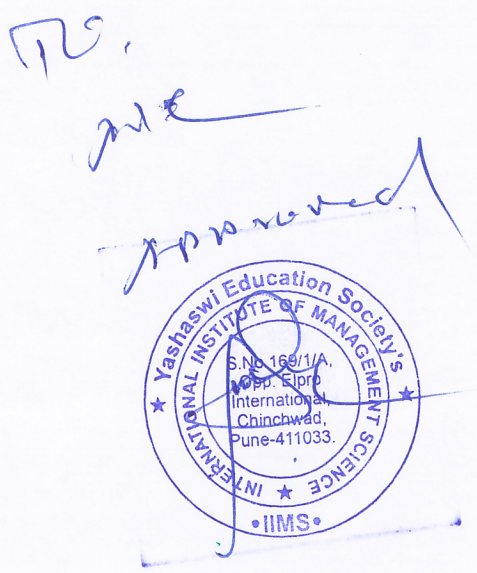 To,
Approved
Yashaswi Education Society's
INTERNATIONAL INSTITUTE OF MANAGEMENT SCIENCE
S.No.169/1/A,
Opp. Elpro
International,
Chinchwad,
Pune-411033.
•IIMS•